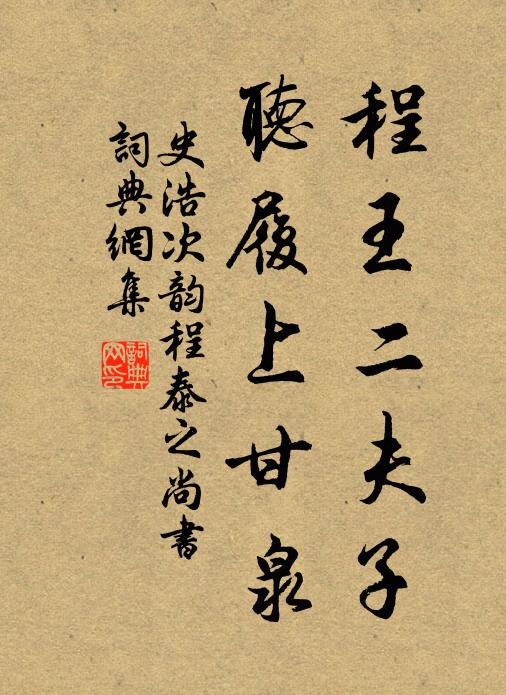 程王二夫子
聽履上甘泉
史浩次韵程泰之尚書
詞典網集
詞典網印